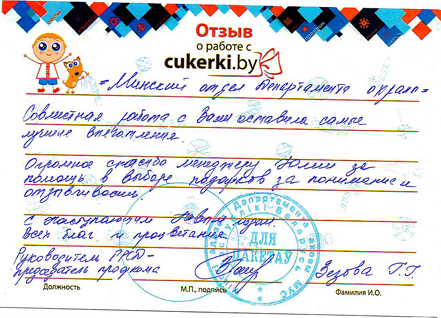 Отзыв
о работе с
cukerki.by
"Минский отдел Департамента охраны"
Совместная работа с Вами оставила самые
лучшие впечатления.
Огромное спасибо менеджеру Юлии за
помощь в выборе подарков за понимание и
отзывчивость
с наступающим Новым годом.
Всех благ и процветания
Руководитель
председатель профкома
Зезова Г.Г.
Должность
М.П., подпись
Фамилия И.О.
Дэпартамента аховы МУС
ДЛЯ
ПАКЕТАЎ